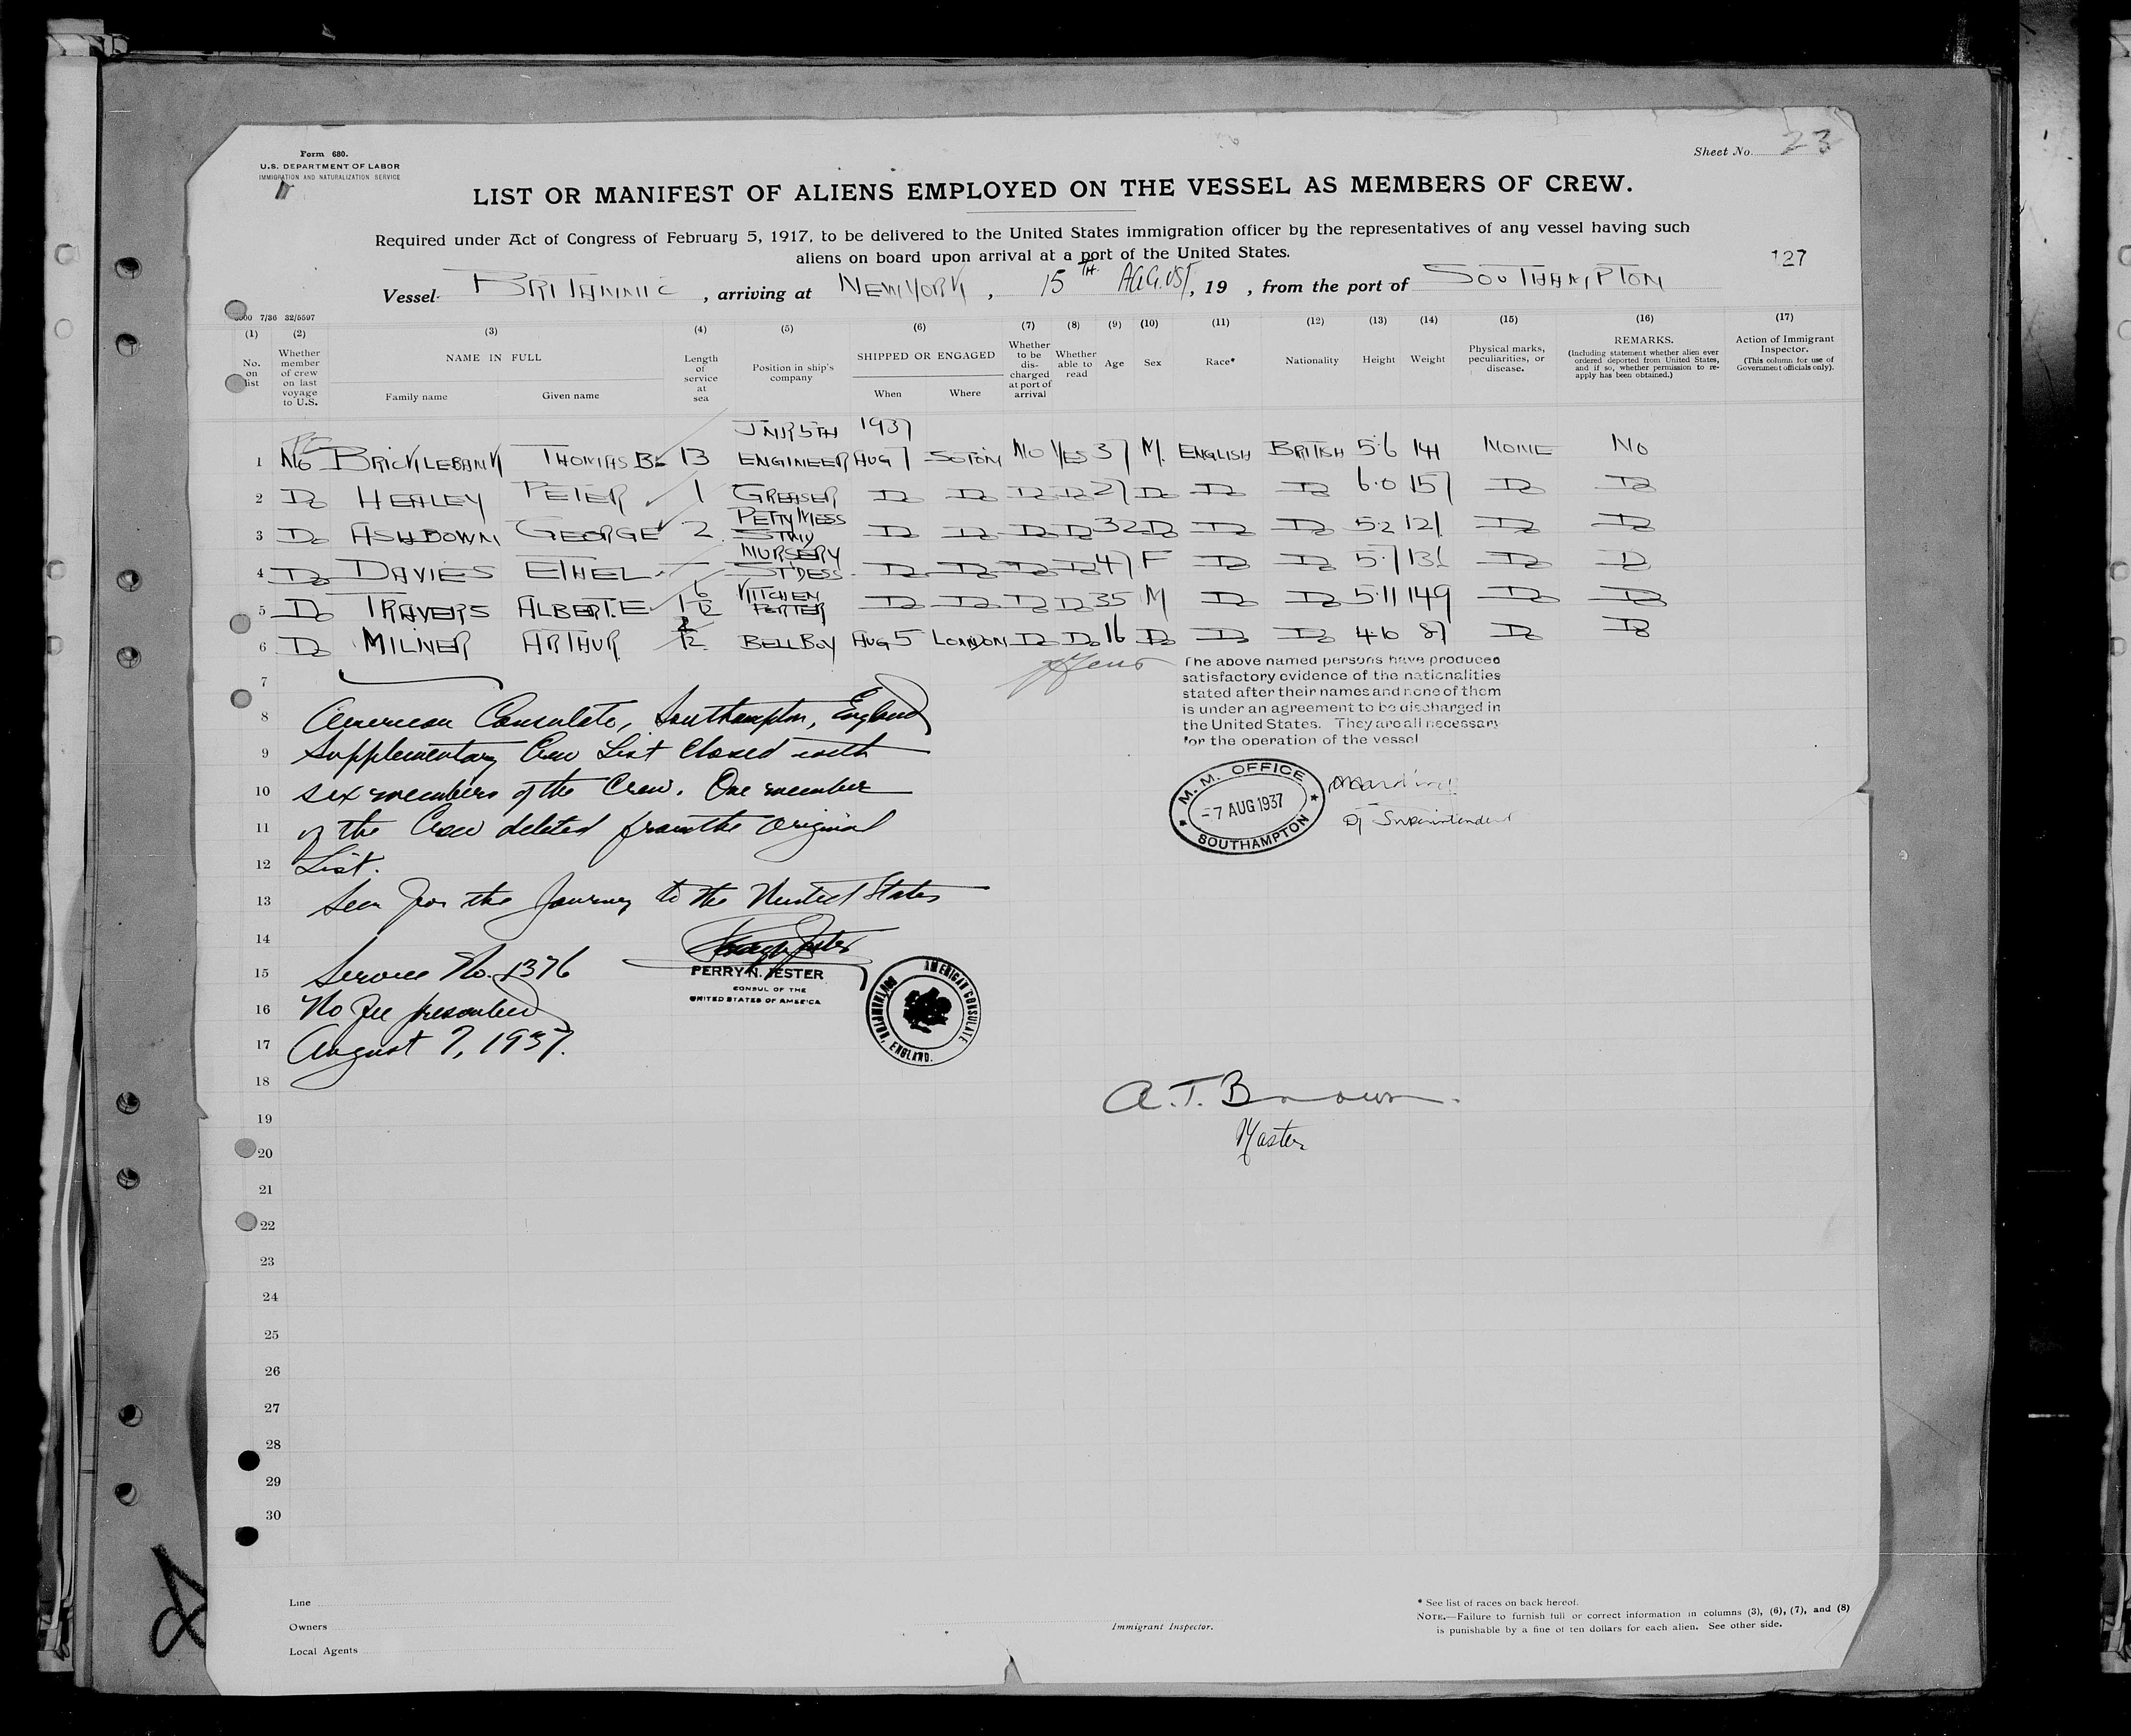 Form 680.
U.S. DEPARTMENT OF LABOR
IMMIGRATION AND NATURALIZATION SERVICE
Sheet No. 23
LIST OR MANIFEST OF ALIENS EMPLOYED ON THE VESSEL AS MEMBERS OF CREW.
Required under Act of Congress of February 5, 1917, to be delivered to the United States immigration officer by the representatives of any vessel having such
aliens on board upon arrival at a port of the United States.
127
Vessel BRITANNIC, arriving at NEW YORK, 15TH AUGUST, 19 , from the port of SOUTHAMPTON
7/36 32/5597
(1) (2) (3) (4) (5) (6) (7) (8) (9) (10) (11) (12) (13) (14) (15) (16) (17)
No. on list
Whether member of crew on last voyage to U.S.
NAME IN FULL
Family name Given name
Length of service at sea
Position in ship's company
SHIPPED OR ENGAGED
When Where
Whether to be discharged at port of arrival
Whether able to read
Age Sex Race* Nationality Height Weight
Physical marks, peculiarities, or disease.
REMARKS.
(Including statement whether alien ever ordered deported from United States, and if so, whether permission to reapply has been obtained.)
Action of Immigrant Inspector.
(This column for use of Government officials only).
JNR 5TH 1937
1 No BRICKLEBANK THOMAS B. 13 ENGINEER AUG 7 SOTON NO YES 37 M. ENGLISH BRITISH 5·6 141 NONE NO
2 Do HEALEY PETER 1 GREASER Do Do Do Do 27 Do Do Do 6·0 157 Do Do
3 Do ASHDOWN GEORGE 2 PETTY MESS STWD Do Do Do Do 32 Do Do Do 5·2 121 Do Do
4 Do DAVIES ETHEL — NURSERY ST'DESS Do Do Do Do 47 F Do Do 5·7 131 Do Do
5 Do TRAVERS ALBERT.E 1 6/12 KITCHEN PORTER Do Do Do Do 35 M Do Do 5·11 149 Do Do
6 Do MILNER ARTHUR 2/12 BELL BOY AUG 5 LONDON Do Do 16 Do Do Do 4·10 87 Do Do
7
The above named persons have produced
satisfactory evidence of the nationalities
stated after their names and none of them
is under an agreement to be discharged in
the United States. They are all necessary
for the operation of the vessel
8 American Consulate, Southampton, England
9 Supplementary Crew List closed with
10 six members of the Crew. One member
11 of the Crew deleted from the original
12 List.
M.M. OFFICE
-7 AUG 1937
SOUTHAMPTON
Superintendent
13 Seen for the Journey to the United States
14
15 Service No. 1376
PERRY N. JESTER
CONSUL OF THE
UNITED STATES OF AMERICA
AMERICAN CONSULATE
SOUTHAMPTON, ENGLAND.
16 No fee prescribed
17 August 7, 1937.
18
A.T. Brown.
19
Master
20
21
22
23
24
25
26
27
28
29
30
Line
Owners
Local Agents
Immigrant Inspector.
* See list of races on back hereof.
NOTE.—Failure to furnish full or correct information in columns (3), (6), (7), and (8)
is punishable by a fine of ten dollars for each alien. See other side.